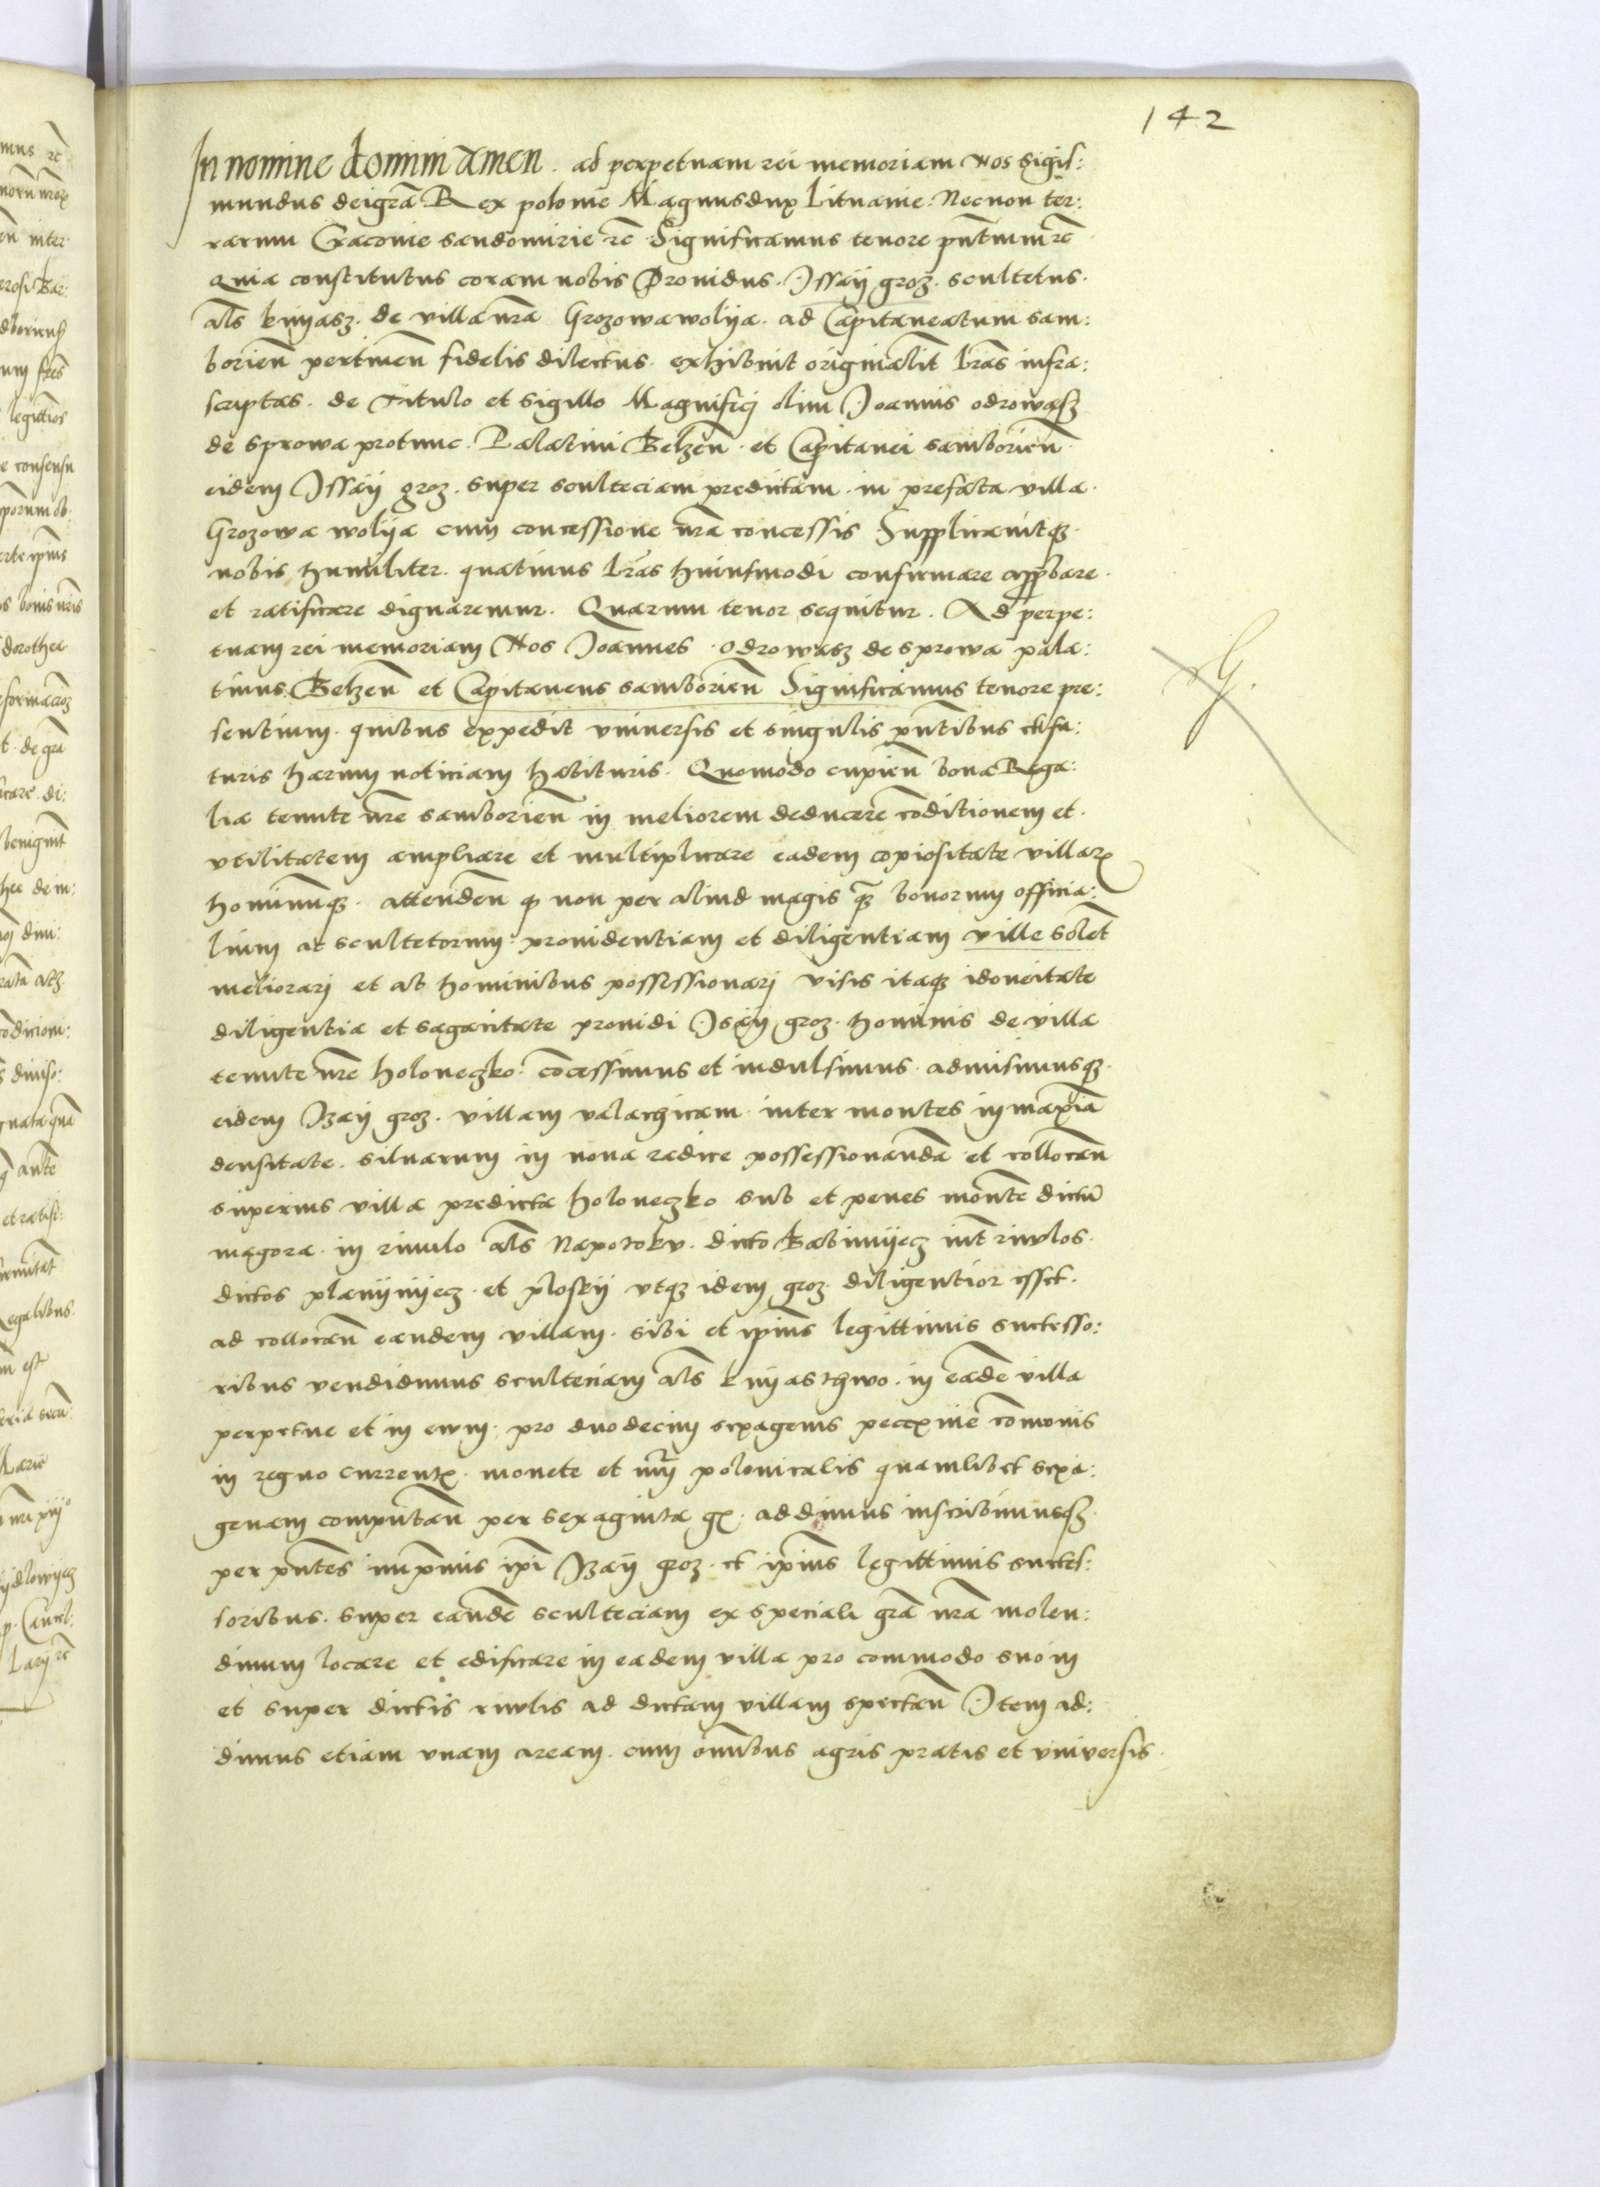 142
In nomine domini amen. ad perpetuam rei memoriam Nos Sigis:
mundus deigrã Rex polonie Magnusdux Lituanie. Necnon ter:
rarum Cracouie sandomirie rc̃ Significamus tenore pñtium rc̃
Quia constitutus coram nobis Prouidus. Jssaij groz. scultetus.
als̃ knijasz. de villa nrã Grozowawolija. ad Capitaneatum sam:
borien̄ pertinen̄ fidelis dilectus. exhibuit originalit̃ lrãs infra:
scriptas. de titulo et sigillo Magnifici olim Joannis odrowasz
de sprowa protunc. Palatini Belzen̄. et Capitanei samborien̄.
eidem Jssaij groz. super sculteciam predictam. in prefata villa.
Grozowa wolija cum concessione nrã concessis Supplicauitqz.
nobis humiliter. quatinus lrãs huiusmodi confirmare appbare.
et ratificare dignaremur. Quarum tenor sequitur. Ad perpe:
tuam rei memoriam Nos Joannes. odrowasz de sprowa pala:
tinus Belzen̄ et Capitaneus samborien̄ Significamus tenore pre:
sentium. quibus expedit vniuersis et singulis pñtibus et fu:
turis harum noticiam habituris. Quomodo cupien̄ bona Rega:
lia tenute nrẽ samborien̄ in meliorem deducere cõditionem et.
vtilitatem ampliare et multiplicare eadem copiositate villarꝝ
hominumqz. attenden̄ ꝙ non per aliud magis qz̃ bonorum officia:
lium ac scultetorum. prouidentiam et diligentiam ville solet̃
meliorari et ab hominibus possessionari visis itaqz idoneitate
diligentia et sagacitate prouidi Jsaij groz. hominis de villa
tenute nrẽ holoneczko. cõcessimus et indulsimus. admisimusqz.
eidem Jzaij groz. villam valachicam. inter montes in maxia
densitate. siluarum in noua radice possessionandã et collocan̄
superius villa predicta holoneczko sub et penes montẽ dictũ
magora. in riuulo als̃ Napotoku. dicto Babinijecz int̃ riulos.
dictos planijnijecz. et ploskij vtqz idem groz. diligentior esset.
ad collocan̄ eandem villam. sibi et ipĩus legittimis successo:
ribus vendidimus scultetiam als̃ knijasthwo. in eadẽ villa
perpetue et in ewm. pro duodecim sexagenis peccunie cõmonis
in regno currentꝭ. monete et nũj polonicalis quamlibet sexa:
genam computan̄ per sexaginta gꝭ. addimus inscribimusqz.
per pñtes inprimis ipĩ Jzaij groz. et ipĩus legittimis succes:
soribus. super eandẽ scultetiam ex speciali grã nrã molen:
dinum locare et edificare in eadem villa pro commodo suo in
et super dictis riulis ad dictam villam spectan̄ Item ad:
dimus etiam vnam aream. cum omĩbus agris pratis et vniuersis.